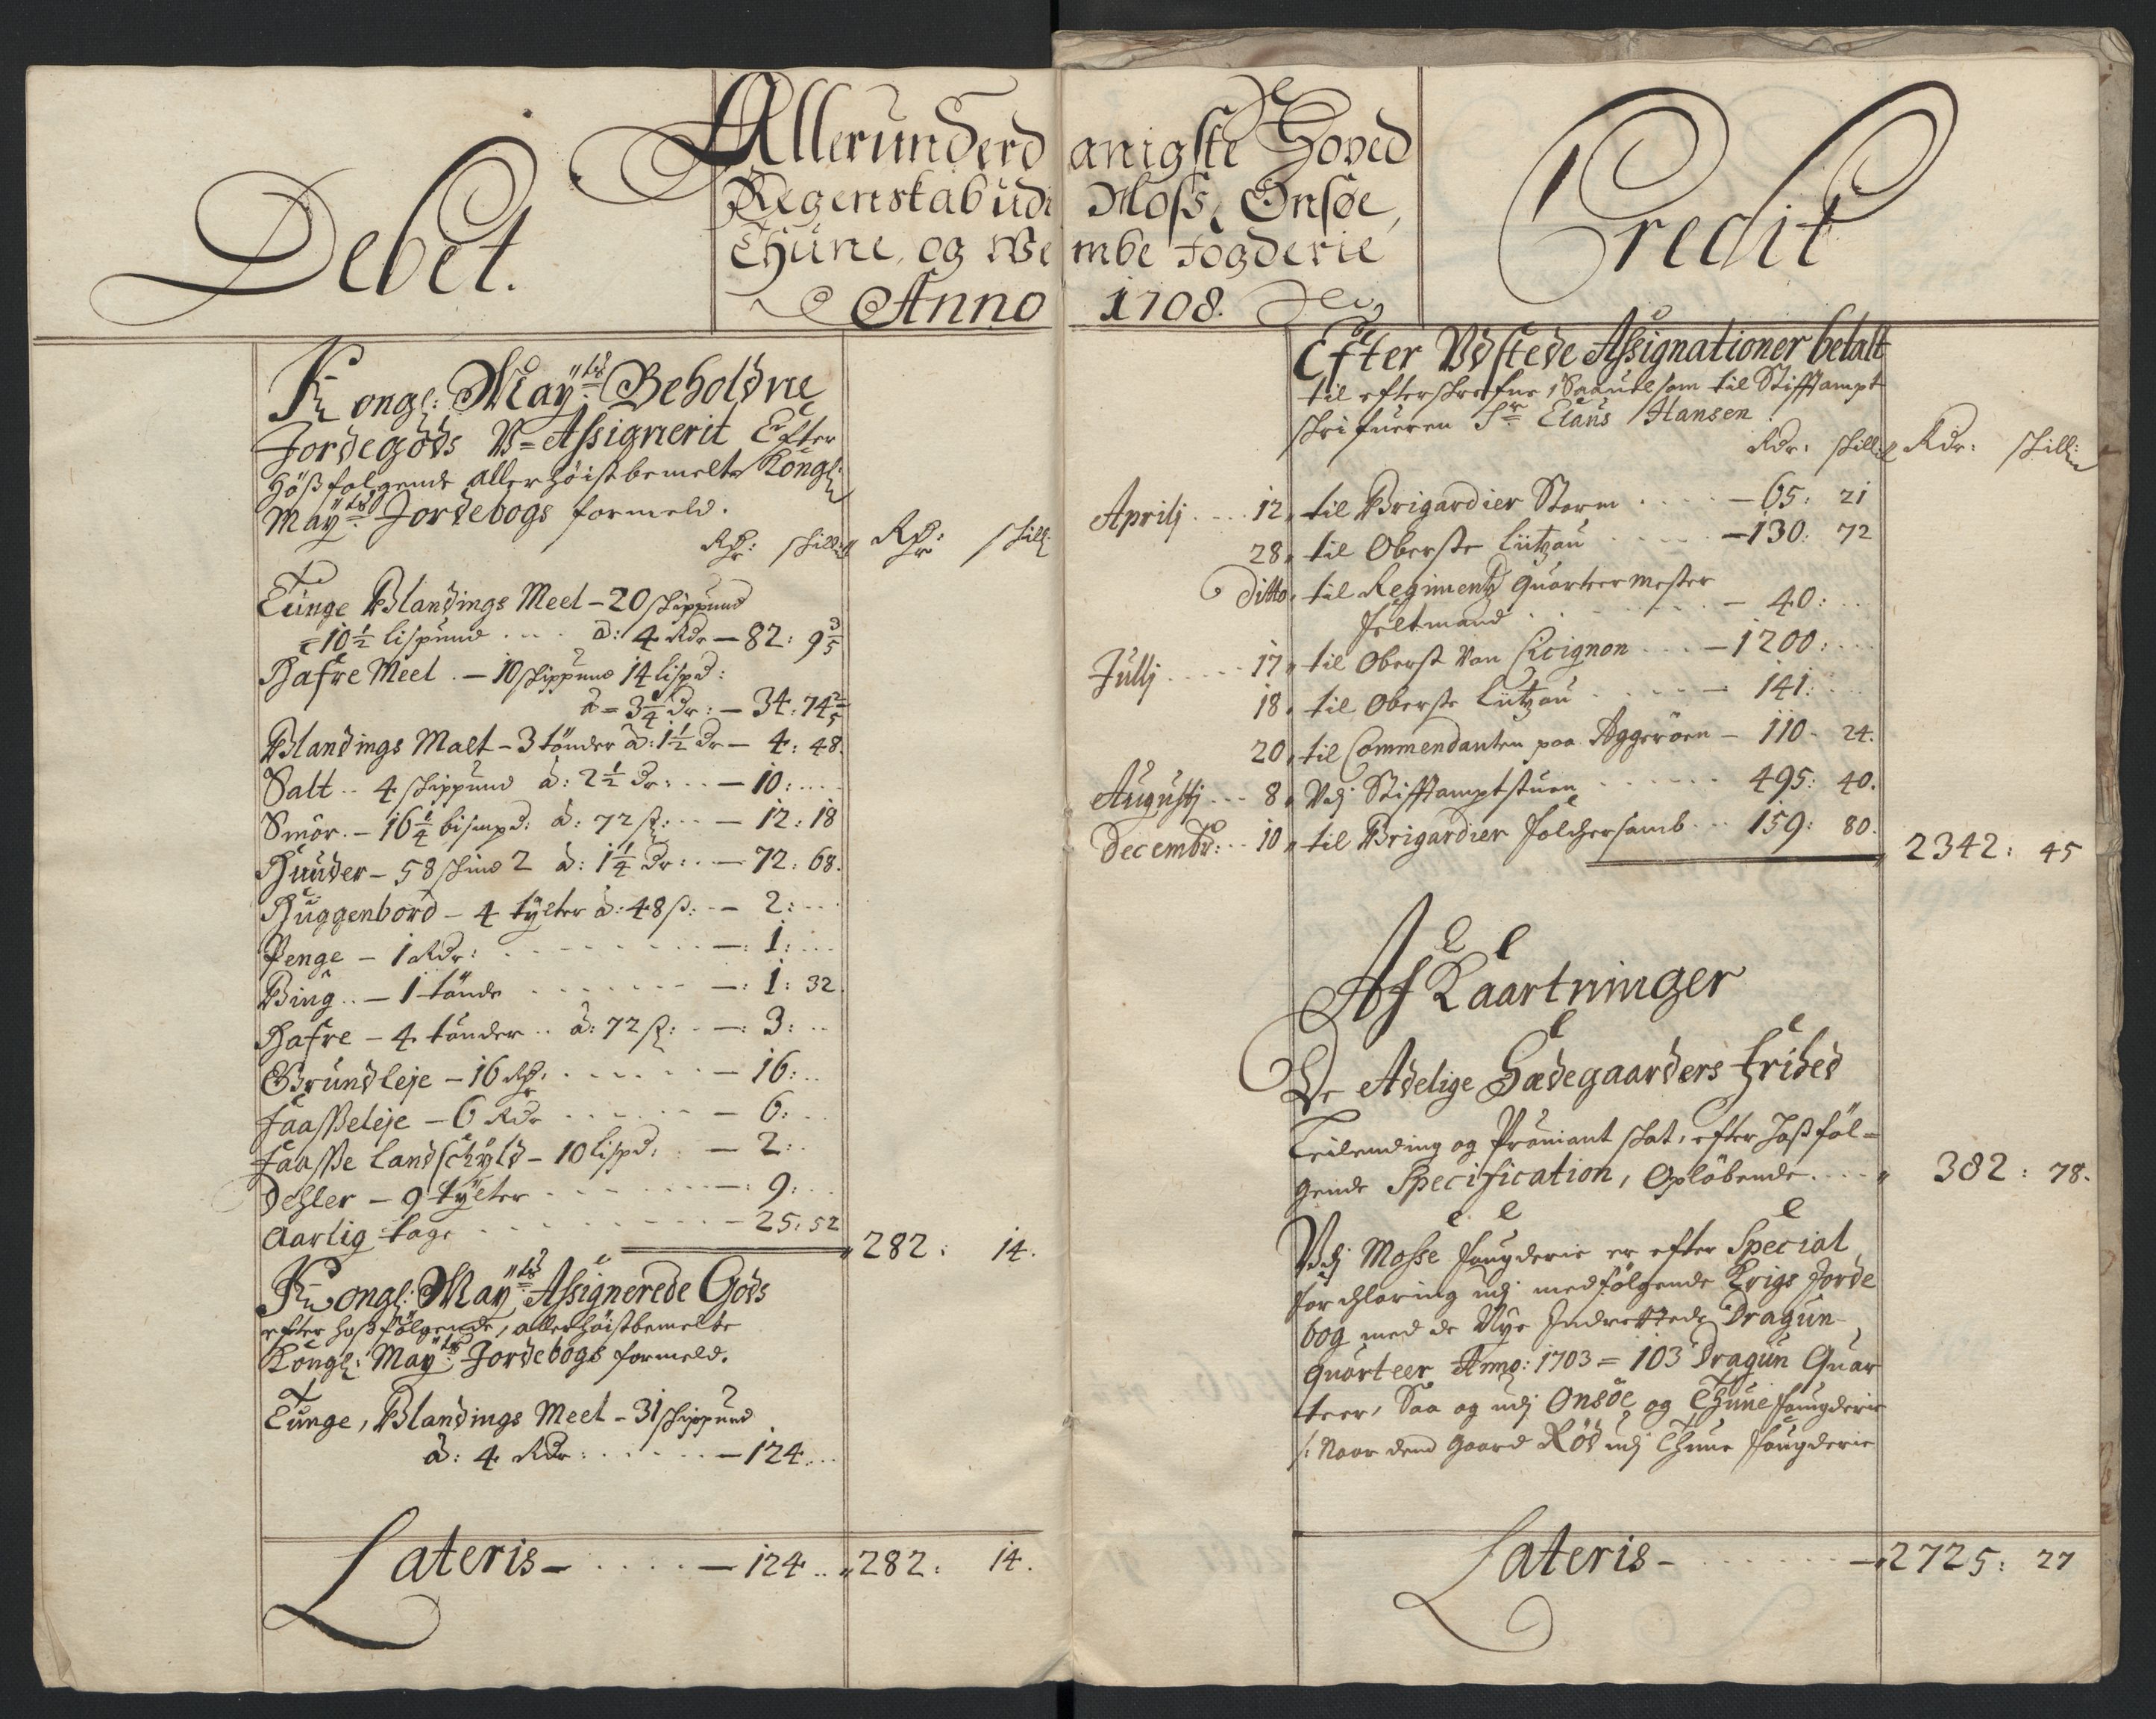 Debet.
Allerunderdanigste Hoved
Regenskab udi Moss, Onsøe,
Thune, og Wembe Fogderie
Anno 1708.
Credit
Kongl: Maÿtz Beholdne
Jordegodß U=Assignerit Efter
hoßfølgende allerhöistbemelte Kongl:
Maÿtz Jordebogs formeld.
Rdr: skill: Rdr: skill:
Tunge Blandings Meel - 20 skippund
10½ lispund .... à: 4 Rdr - 82: 9 3/5
Hafre Meel . - 10 skippund 14 lispd:
à = 3¼ dr: - 34: 74 2/5
Blandings Malt - 3 tönder à: 1½ dr - 4: 48.
Salt .. 4 skippund à: 2½ dr: .. - 10: ....
Smör. - 16¼ bismpd: à: 72 ß: .. - 12: 18
Huuder - 58 skind 2 à: 1¼ dr: .. - 72: 68.
Huggenbord - 4 tÿlter à: 48 ß: - 2: ...
Penge - 1 Rdr: - 1: ...
Bÿug .. - 1 tönde - 1: 32.
Hafre - 4 tönder .. à: 72 ß: - 3: ..
Grundleje - 16 Rdr: - 16: ..
Faaßeleje - 6 Rdr - 6: ..
Faaße landschÿld - 10 lispd: - 2: .
Dehler - 9 tÿlter - 9: ..
Aarlig tage - 25: 52
282: 14.
Kongl: Maÿtz Assignerede Gods
efter hoßfölgende, allerhöistbemelte
Kongl: Maÿtz Jordebogs formeld.
Tunge, Blandings Meel - 31 skippund
à: 4 Rdr: - 124 ...
Lateris - ..... - 124 .. 282: 14.
Efter Udstede Assignationer betalt
til efterskrefne, Saauel som til Stifftampt
skrifueren Sr Claus Hansen
Rdr: skill: Rdr: skill:
Aprilj .... 12, til Brigardier Storm .... - 65: 21
28, til Oberste Lützau - 130: 72
Ditto, til Regimentz Quarteer Mester
Feltmand - 40: ..
Julij ..... 17, til Oberst Von Cicignon ... - 1200: ...
18, til Oberste Lützau - 141: ...
20, til Commendanten paa Aggeröen - 110 - 24.
Augustj ... 8, Vdj Stifftamptstuen 495: 40.
Decembr: .. 10, til Brigardier Folchersamb ... 159: 80.
2342: 45
Af Kaartninger
De Adelige Sædegaarders frihed
Leilending og Proviant skat, efter hoßföl=
gende Specification, Opløbende .... 382: 78.
Vdj Mosse fougderie er efter Special
forchlaring udj medfölgende Krigs Jorde
bog med de Nye Indrettede Dragun
quarteer Anno: 1703 = 103 Dragun Quar
teer, Saa og udj Onsöe og Thune fougderie
/: Naar dend gaard Röd udj Thune fougderie
Lateris - - 2725: 27